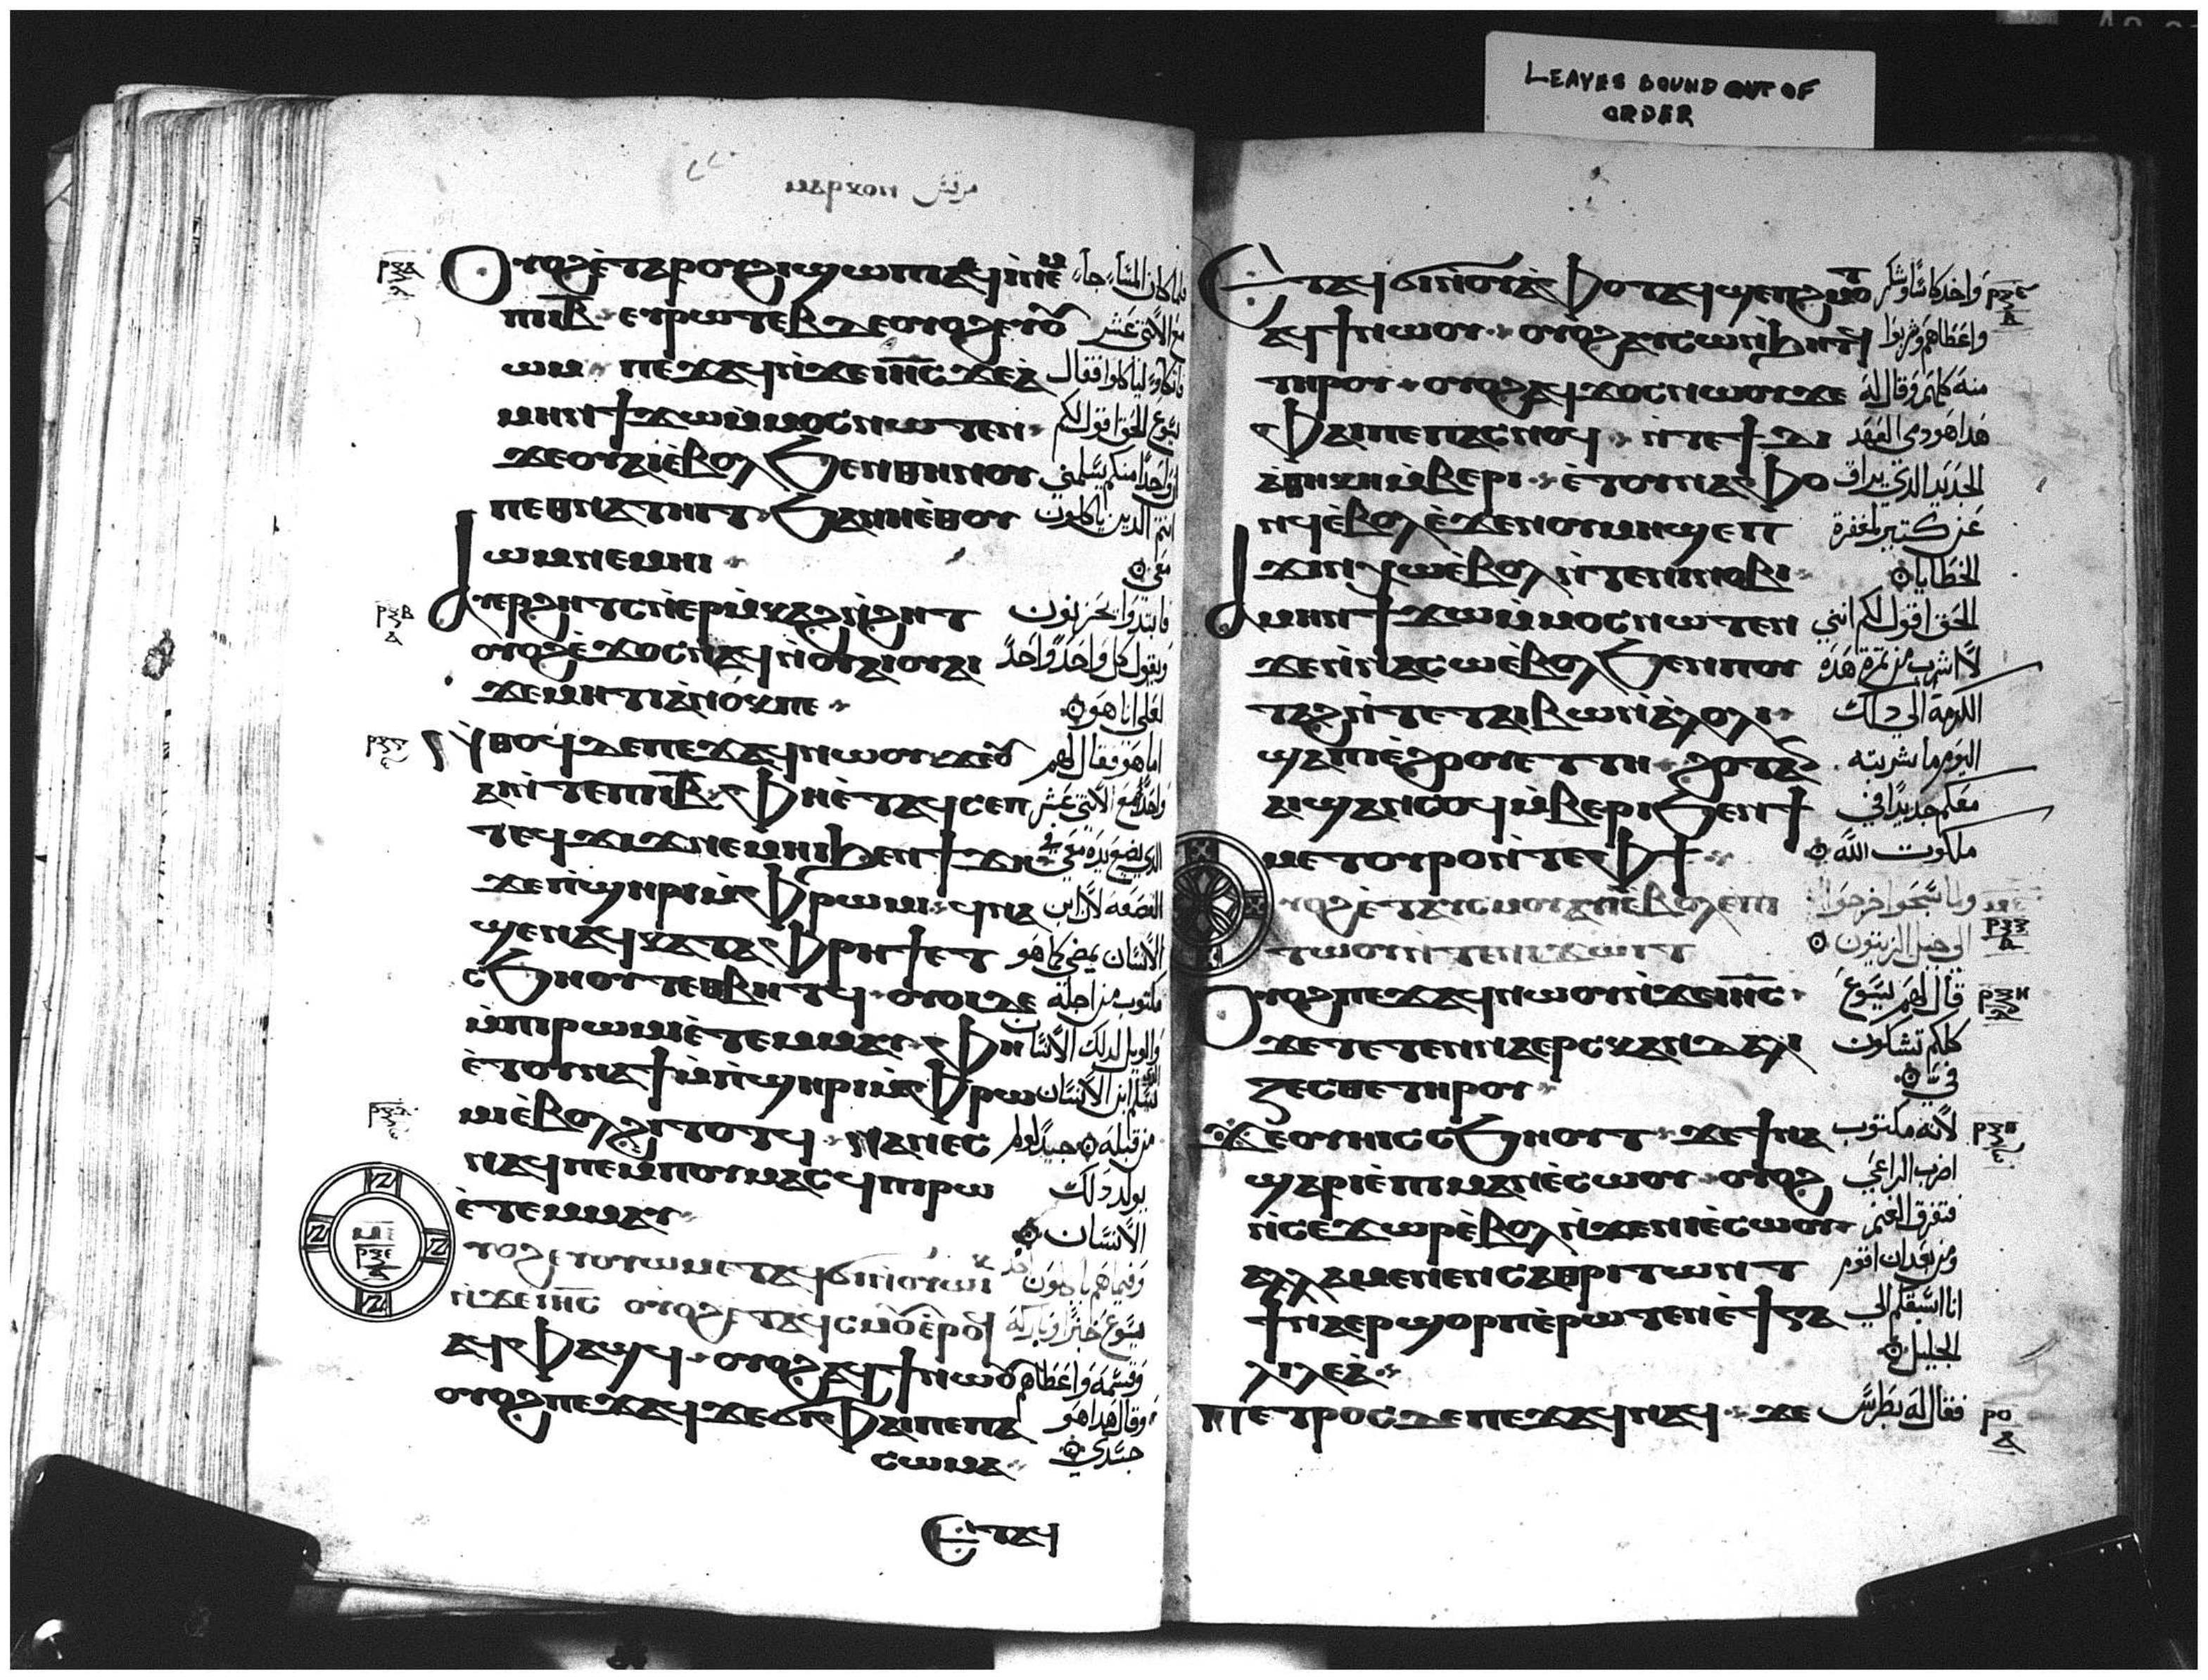 LEAVES BOUND OUT OF
ORDER
ⲙⲁⲣⲕⲟⲛ مرقس
ⲟⲩⲟϩ ⲉⲧⲁⲣⲟⲩϩⲓ ϣⲱⲡⲓ ⲁϥⲓ ⲛⲉⲙ
ⲡⲓⲓⲃ ⲉⲩⲣⲱⲧⲉⲃ ⲇⲉ ⲟⲩⲟϩ ⲉⲩⲟⲩ مع الاثني عشر
ⲱⲙ ⲡⲉϫⲁϥ ⲛϫⲉ ⲓⲏⲥ ϫⲉ ⲁ
ⲙⲏⲛ ϯϫⲱ ⲙⲙⲟⲥ ⲛⲱⲧⲉⲛ يسوع الحق اقول لكم
ϫⲉ ⲟⲩⲁⲓ ⲉⲃⲟⲗ ϧⲉⲛ ⲑⲏⲛⲟⲩ ان واحدا منكم يسلمني
ⲡⲉⲑⲛⲁⲧⲏⲓⲧ ϧⲁ ⲛⲏ ⲉⲑⲟⲩ
ⲱⲙ ⲛⲉⲙⲏⲓ معي
ⲁⲩⲉⲣϩⲏⲧⲥ ⲛⲉⲣⲙⲕⲁϩ ⲛϩⲏⲧ فابتدوا يحزنون
ⲟⲩⲟϩ ⲉϫⲟⲥ ⲛⲁϥ ⲛⲟⲩⲁⲓ ⲟⲩⲁⲓ ويقول كل واحد واحد
ϫⲉ ⲙⲏⲧⲓ ⲁⲛⲟⲕ ⲡⲉ لعلي انا هو
ⲛⲑⲟϥ ⲇⲉ ⲡⲉϫⲁϥ ⲛⲱⲟⲩ ϫⲉ ⲟⲩ اما هو فقال لهم
ⲁⲓ ⲛⲧⲉ ⲡⲓⲓⲃ ⲫⲏ ⲉⲧⲁϥⲥⲉⲡ
ⲧⲉϥϫⲓϫ ⲛⲉⲙⲏⲓ ϧⲉⲛ ϯϫⲏ الذي يضع يده معي في
ϫⲉ ⲡϣⲏⲣⲓ ⲙⲫⲣⲱⲙⲓ ϥⲛⲁ القصعة لان ابن
ϣⲉⲛⲁϥ ⲕⲁⲧⲁ ⲫⲣⲏϯ ⲉⲧ الانسان يمضي كما هو
ⲥϧⲏⲟⲩⲧ ⲉⲑⲃⲏⲧϥ ⲟⲩⲟⲓ ⲇⲉ مكتوب من اجله
ⲙⲡⲓⲣⲱⲙⲓ ⲉⲧⲉⲙⲙⲁⲩ ⲫⲏ والويل لذلك الانسان
ⲉⲧⲟⲩⲛⲁϯ ⲙⲡϣⲏⲣⲓ ⲙⲫⲣⲱ
ⲙⲓ ⲉⲃⲟⲗ ϩⲓⲧⲟⲧϥ ⲛⲁⲛⲉⲥ
ⲛⲁϥ ⲡⲉ ⲙⲡⲟⲩⲙⲁⲥϥ ⲡⲓⲣⲱ يولد ذلك
ⲉⲧⲉⲙⲙⲁⲩ الانسان
ⲟⲩⲟϩ ⲉⲩⲟⲩⲱⲙ ⲉⲧⲁϥϭⲓ ⲛⲟⲩⲱⲓⲕ وفيما هم ياكلون اخذ
ⲛϫⲉ ⲓⲏⲥ ⲟⲩⲟϩ ⲉⲧⲁϥⲥⲙⲟⲩ ⲉⲣⲟϥ يسوع خبزا وباركه
ⲁϥⲫⲁϣϥ ⲟⲩⲟϩ ⲁϥϯ ⲛⲱⲟⲩ وقسمه واعطاهم
ⲟⲩⲟϩ ⲡⲉϫⲁϥ ϫⲉ ϭⲓ ⲫⲁⲓ ⲡⲉ ⲡⲁ وقال هذا هو
ⲥⲱⲙⲁ جسدي
ⲉⲧⲁϥ
ⲉⲧⲁϥϭⲓ ⲛⲟⲩⲁⲫⲟⲧ ⲁϥϣⲉⲡϩⲙⲟⲧ واخذ كاسا وشكر
ⲁϥϯ ⲛⲱⲟⲩ ⲟⲩⲟϩ ⲁⲩⲥⲱ ⲛϧⲏⲧϥ واعطاهم وشربوا
ⲧⲏⲣⲟⲩ ⲟⲩⲟϩ ⲁϥϫⲟⲥ ⲛⲱⲟⲩ ϫⲉ منه كلهم وقال له
ⲫⲁⲓ ⲡⲉ ⲡⲁⲥⲛⲟϥ ⲛⲧⲉ ϯⲇⲓ هذا هو دمي العهد
ⲁⲑⲏⲕⲏ ⲙⲃⲉⲣⲓ ⲉⲧⲟⲩⲛⲁⲫⲟ الجديد الذي يهراق
ⲛϥ ⲉⲃⲟⲗ ⲉϫⲉⲛ ⲟⲩⲙⲏϣ ⲉⲡ عن كثير لمغفرة
ϫⲓⲛⲭⲱ ⲉⲃⲟⲗ ⲛⲧⲉ ⲛⲓⲛⲟⲃⲓ الخطايا
ⲁⲙⲏⲛ ϯϫⲱ ⲙⲙⲟⲥ ⲛⲱⲧⲉⲛ الحق اقول لكم انني
ϫⲉ ⲛⲛⲁⲥⲱ ⲉⲃⲟⲗ ϧⲉⲛ ⲡⲟⲩ لا اشرب من ثمرة هذه
ⲧⲁϩ ⲛⲧⲉ ⲧⲁⲓⲃⲱ ⲛⲁⲗⲟⲗⲓ الكرمة الي ذلك
ϣⲁ ⲡⲓⲉϩⲟⲟⲩ ⲉⲧⲧⲏ ϩⲟⲧⲁⲛ اليوم ما شربته
ⲁⲓϣⲁⲛⲥⲟϥ ⲙⲃⲉⲣⲓ ϧⲉⲛ ϯ معكم جديدا في
ⲙⲉⲧⲟⲩⲣⲟ ⲛⲧⲉ ⲫϯ ملكوت الله
ⲟⲩⲟϩ ⲉⲧⲁⲩⲥⲙⲟⲩ ⲁⲩⲓ ⲉⲃⲟⲗ ⲉⲡⲓ ولما سبحوا خرجوا
ⲧⲱⲟⲩ ⲛⲧⲉ ⲛⲓϫⲱⲓⲧ الي جبل الزيتون
ⲟⲩⲟϩ ⲡⲉϫⲁϥ ⲛⲱⲟⲩ ⲛϫⲉ ⲓⲏⲥ قال لهم يسوع
ϫⲉ ⲧⲉⲧⲉⲛⲛⲁⲉⲣⲥⲕⲁⲛⲇⲁⲗⲓ كلكم تشكون
ⲍⲉⲥⲑⲉ ⲧⲏⲣⲟⲩ في
ϫⲉ ⲟⲩⲏⲓ ⲥⲥϧⲏⲟⲩⲧ ϫⲉ ϯⲛⲁ لانه مكتوب
ϣⲁⲣⲓ ⲉⲡⲓⲙⲁⲛⲉⲥⲱⲟⲩ ⲟⲩⲟϩ اضرب الراعي
ⲛⲥⲉϫⲱⲣ ⲉⲃⲟⲗ ⲛϫⲉ ⲛⲓⲉⲥⲱⲟⲩ فتفرق الغنم
ⲁⲗⲗⲁ ⲙⲉⲛⲉⲛⲥⲁ ⲑⲣⲓⲧⲱⲛⲧ ومن بعد ان اقوم
ϯⲛⲁⲉⲣϣⲟⲣⲡ ⲉⲣⲱⲧⲉⲛ ⲉϯⲅⲁ انا اسبقكم الي
ⲗⲓⲗⲉⲁ الجليل
ⲡⲉⲧⲣⲟⲥ ⲇⲉ ⲡⲉϫⲁϥ ⲛⲁϥ ϫⲉ فقال له بطرس